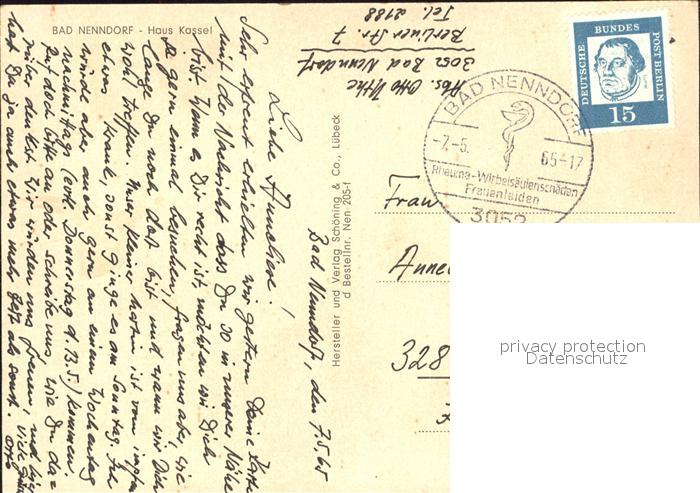 BAD NENNDORF - Haus Kassel
Abs. Otto Uthe
3052 Bad Nenndorf
Berliner Str. 7
Tel. 2188
DEUTSCHE BUNDES POST BERLIN
15
BAD NENNDORF
-7.-5. 65-17
Rheuma-Wirbelsäulenschäden
Frauenleiden
3052
Bad Nenndorf, den 7.5.65
Liebe Anneliese!
Sehr erfreut erhielten wir gestern Deine Karte
mit der Nachricht dass Du so in unserer Nähe
bist. Wenn es Dir recht ist, möchten wir Dich
gern einmal besuchen, fragen uns aber, wie
lange Du noch dort bist und wann wir Dich
wohl treffen. Unser kleiner ist vom impfen
etwas krank, sonst ginge es am Sonntag. Ich
würde aber auch gern an einem Wochentag
nachmittags (evtl. Donnerstag d. 13.5.) kommen.
Ruf doch bitte an oder schreibe uns, wie Du da-
rüber denkst. Wir würden uns freuen, und
hast Du ja auch etwas mehr Zeit als sonst.
Otto
Hersteller und Verlag Schöning & Co., Lübeck
d Bestellnr. Nen 205-f
Frau
Anne
328
privacy protection
Datenschutz